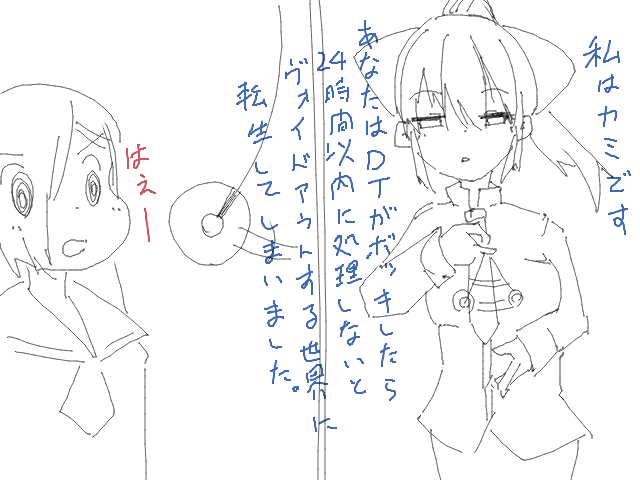 私はカミです
あなたはDTがボッキしたら
24時間以内に処理しないと
ヴォイドアウトする世界に
転生してしまいました。
はえー